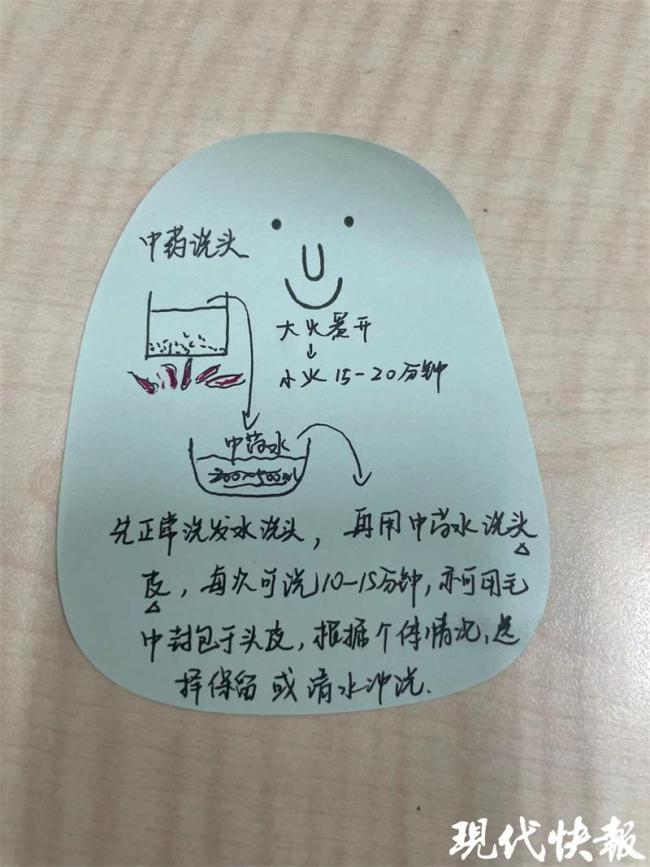 中药洗头
大火煮开
↓
小火 15-20分钟
中药水
200~500ml
先正常洗发水洗头，再用中药水洗头
皮，每次可洗10-15分钟，亦可用毛
巾封包于头皮，根据个体情况，选
择保留或清水冲洗.
现代快報